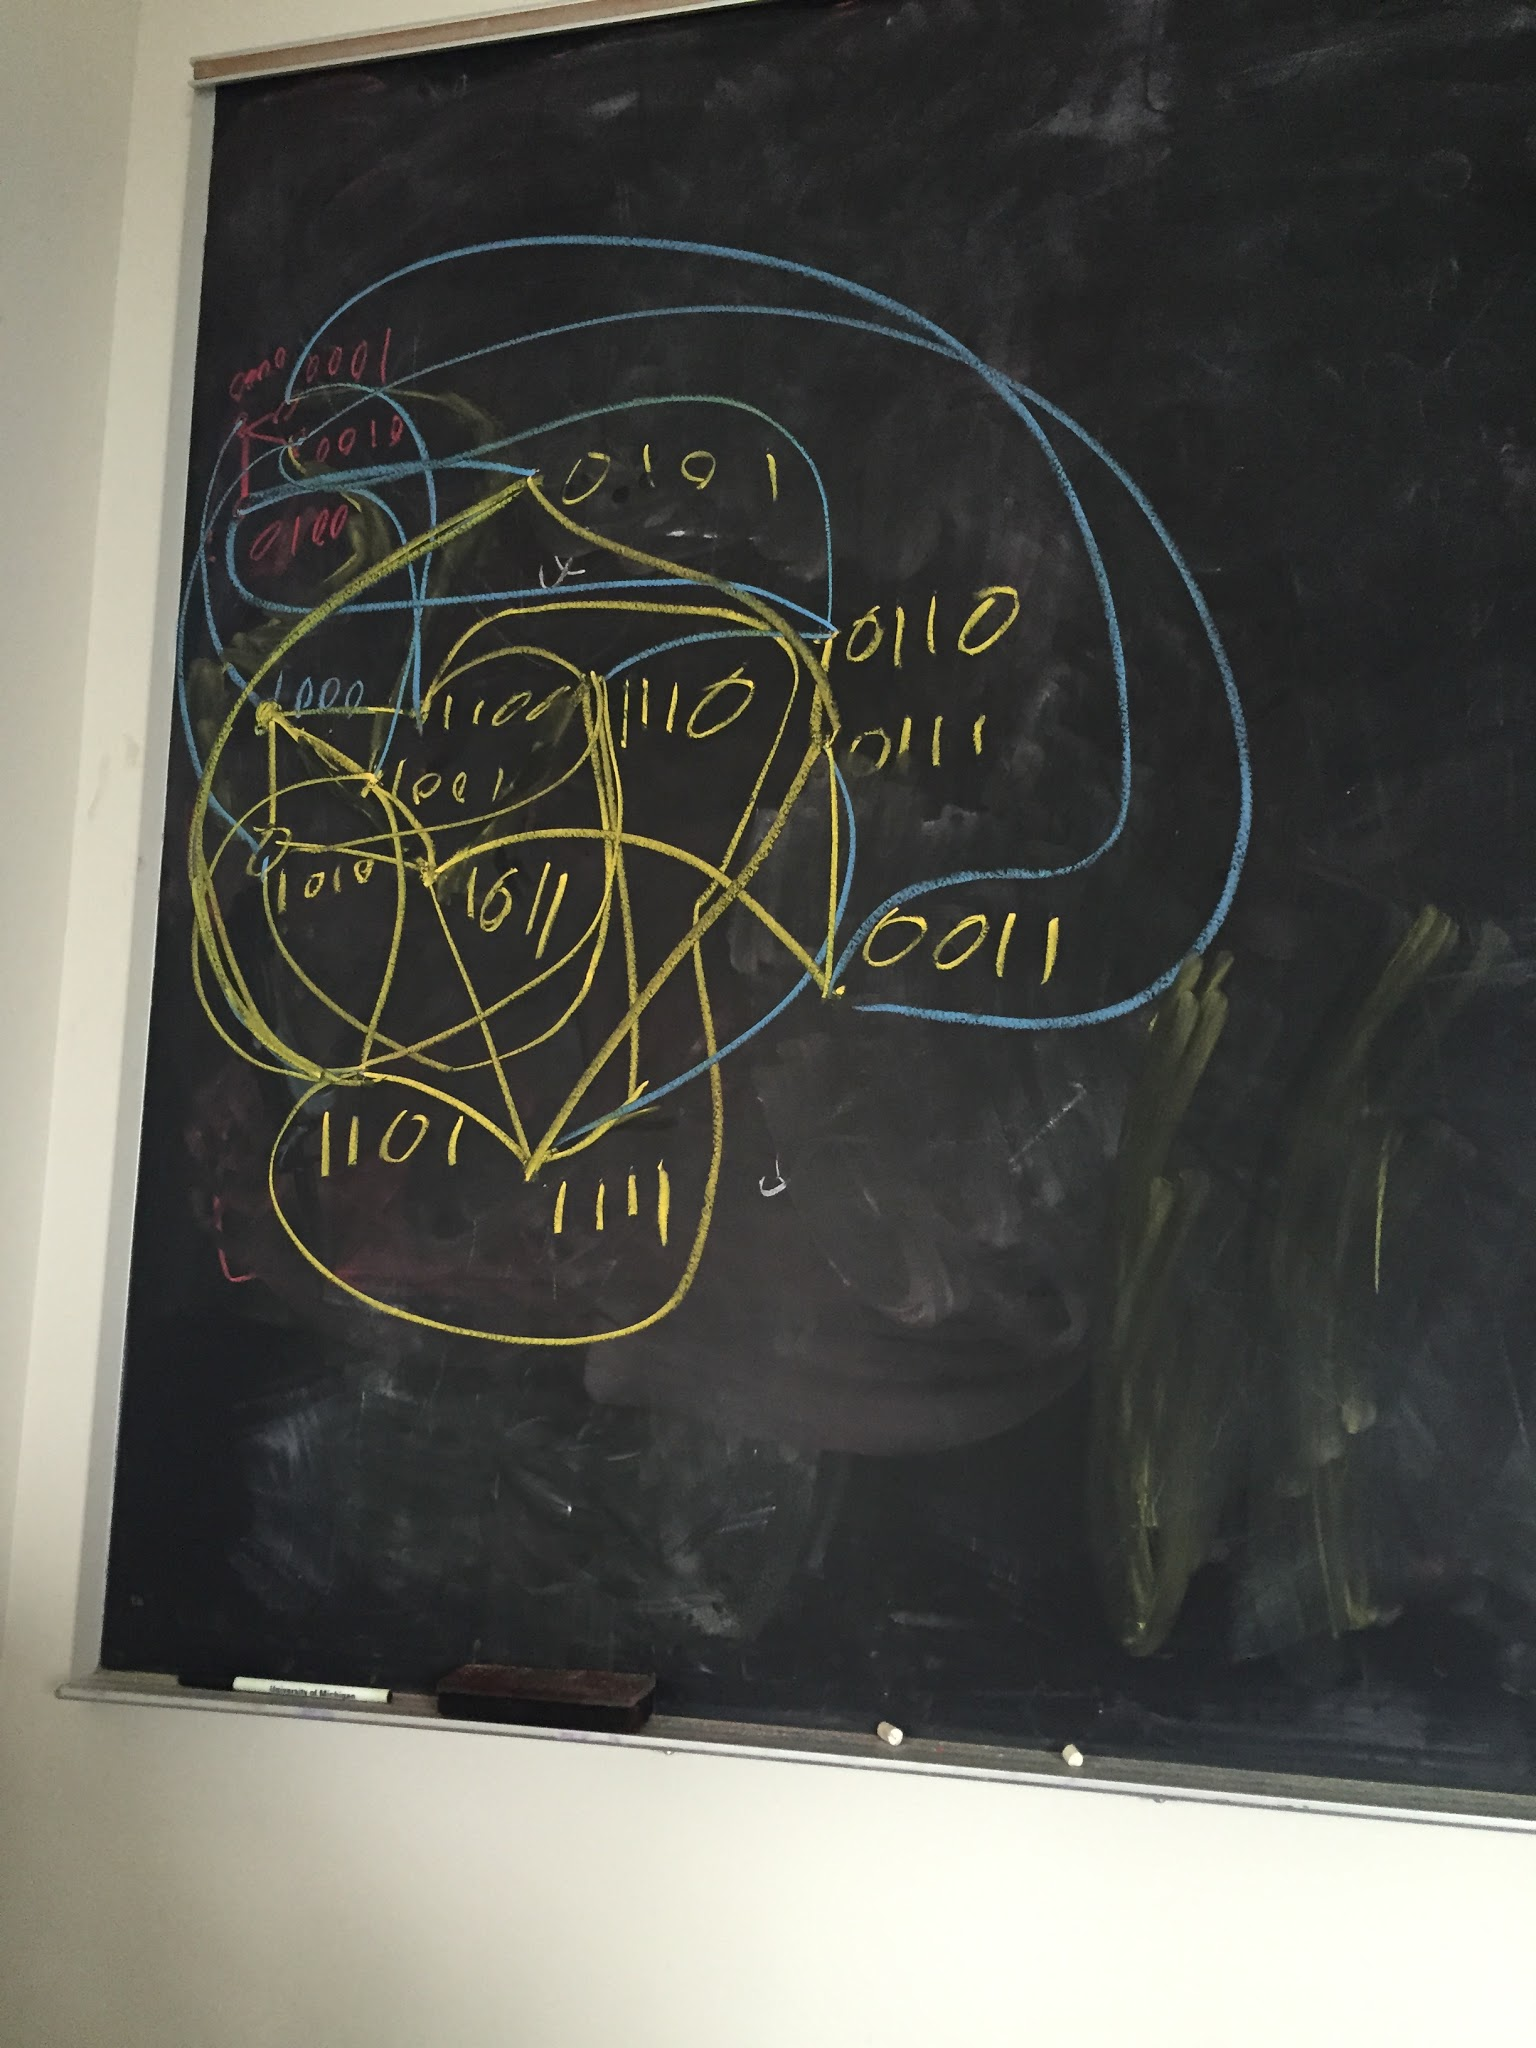 0000 0001
0010
0101
0100
0110
1000
1100
1110
0111
1001
1010
1011
0011
1101
1111
University of Michigan